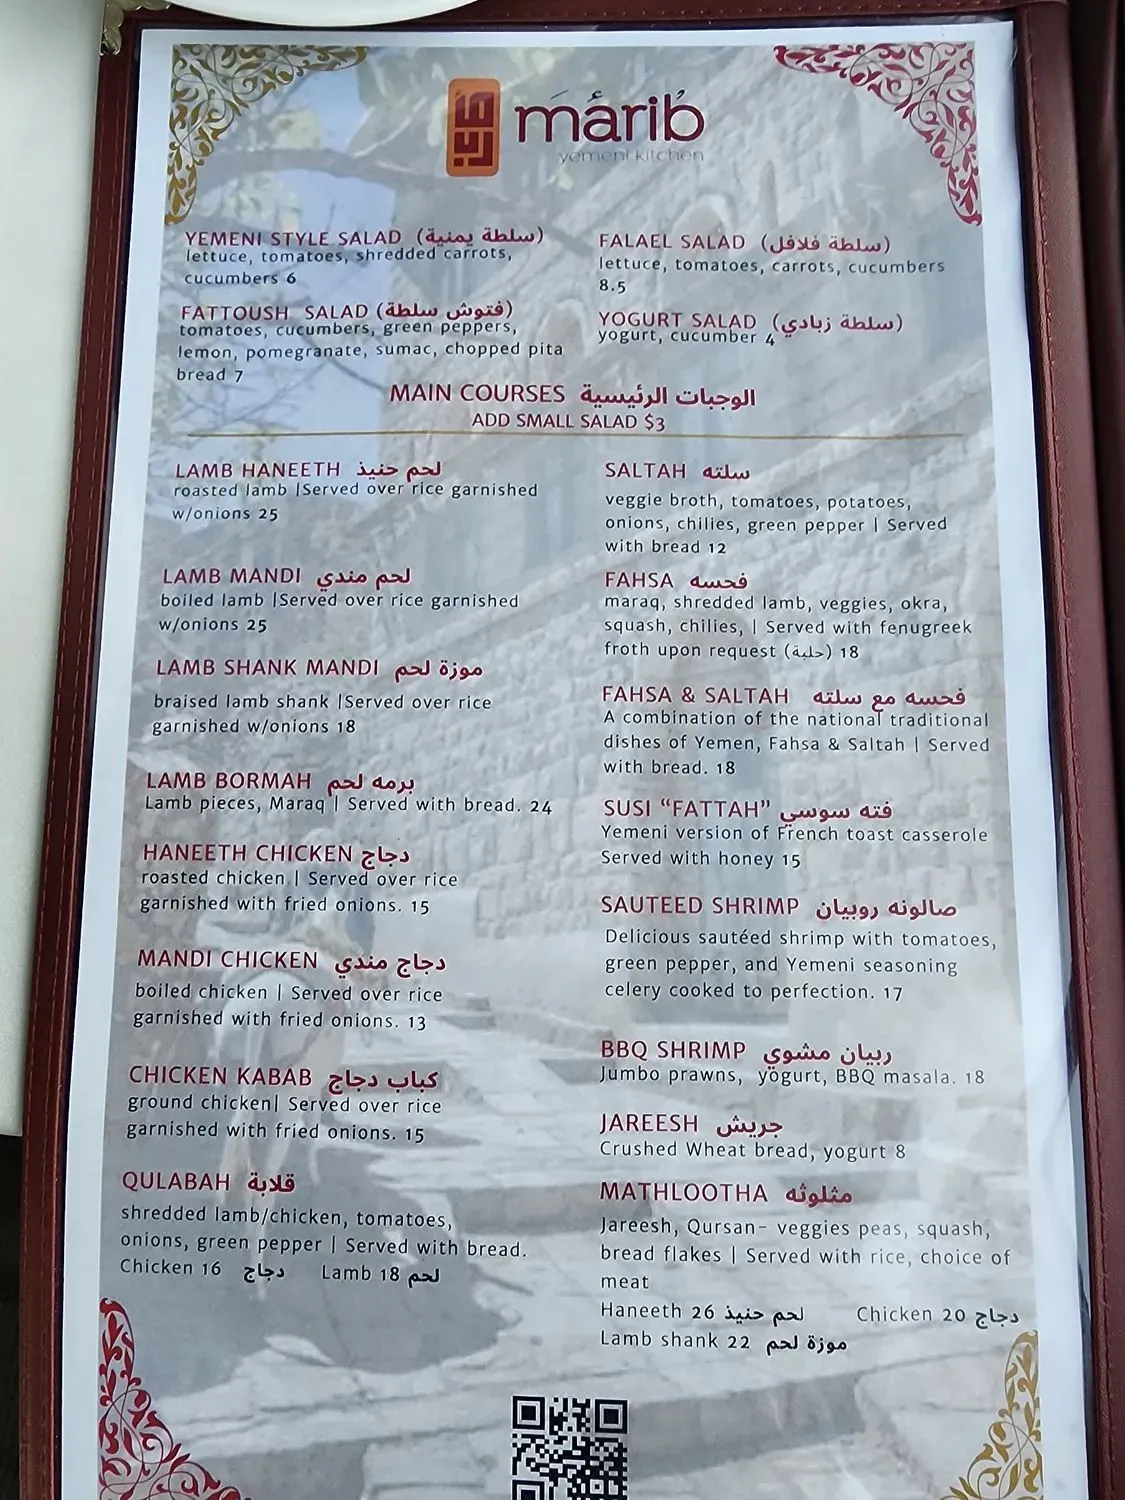 مأرب
mārib
yemeni kitchen
YEMENI STYLE SALAD (سلطة يمنية)
lettuce, tomatoes, shredded carrots,
cucumbers 6
FATTOUSH SALAD (فتوش سلطة)
tomatoes, cucumbers, green peppers,
lemon, pomegranate, sumac, chopped pita
bread 7
FALAEL SALAD (سلطة فلافل)
lettuce, tomatoes, carrots, cucumbers
8.5
YOGURT SALAD (سلطة زبادي)
yogurt, cucumber 4
MAIN COURSES الوجبات الرئيسية
ADD SMALL SALAD $3
LAMB HANEETH لحم حنيذ
roasted lamb |Served over rice garnished
w/onions 25
LAMB MANDI لحم مندي
boiled lamb |Served over rice garnished
w/onions 25
LAMB SHANK MANDI موزة لحم
braised lamb shank |Served over rice
garnished w/onions 18
LAMB BORMAH برمه لحم
Lamb pieces, Maraq | Served with bread. 24
HANEETH CHICKEN دجاج
roasted chicken | Served over rice
garnished with fried onions. 15
MANDI CHICKEN دجاج مندي
boiled chicken | Served over rice
garnished with fried onions. 13
CHICKEN KABAB كباب دجاج
ground chicken| Served over rice
garnished with fried onions. 15
QULABAH قلابة
shredded lamb/chicken, tomatoes,
onions, green pepper | Served with bread.
Chicken 16 دجاج Lamb 18 لحم
SALTAH سلته
veggie broth, tomatoes, potatoes,
onions, chilies, green pepper | Served
with bread 12
FAHSA فحسه
maraq, shredded lamb, veggies, okra,
squash, chilies, | Served with fenugreek
froth upon request (حلبة) 18
FAHSA & SALTAH فحسه مع سلته
A combination of the national traditional
dishes of Yemen, Fahsa & Saltah | Served
with bread. 18
SUSI “FATTAH” فته سوسي
Yemeni version of French toast casserole
Served with honey 15
SAUTEED SHRIMP صالونه روبيان
Delicious sautéed shrimp with tomatoes,
green pepper, and Yemeni seasoning
celery cooked to perfection. 17
BBQ SHRIMP ربيان مشوي
Jumbo prawns, yogurt, BBQ masala. 18
JAREESH جريش
Crushed Wheat bread, yogurt 8
MATHLOOTHA مثلوثه
Jareesh, Qursan- veggies peas, squash,
bread flakes | Served with rice, choice of
meat
Haneeth 26 لحم حنيذ Chicken 20 دجاج
Lamb shank 22 موزة لحم